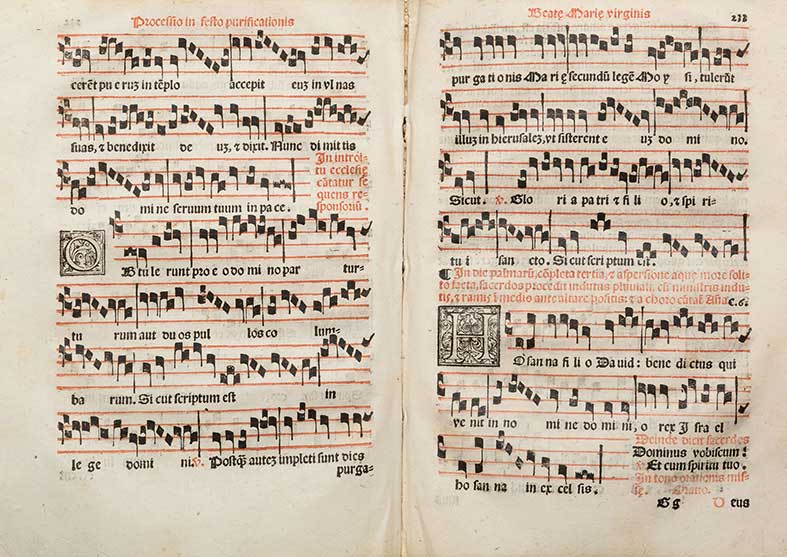 Processio in festo purificationis
cerēt pueruz in tēplo accepit euz in vlnas
suas, ⁊ benedixit deuz, ⁊ dixit. Nunc dimittis
In introi-
tu ecclesię
cātatur se
quens re-
sponsoriū.
do mine seruum tuum in pace.
Obtulerunt pro eo domino par tur-
turum aut duos pullos colum-
barum. Sicut scriptum est in
lege domini. ℣. Postq̃ autez impleti sunt dies
purga-
Beatę Marię virginis
233
purgationis Marię secundū legē Moysi, tulerūt
illuz in hierusalez, vt sisterent euz domino.
Sicut. ℣. Gloria patri ⁊ filio, ⁊ spiri-
tui sancto. Sicut scriptum est.
¶ In die palmarū, cōpleta tertia, ⁊ aspersione aque more soli-
to facta, sacerdos procedit indutus pluuiali, cū ministris indu-
tis, ⁊ ramis ī medio ante altare positis: ⁊ a choro cātat̄ Añа
Hosanna filio Dauid: benedictus qui
venit in nomine domini, o rex Israel
Deinde dicit sacerdos
Dominus vobiscum:
℟. Et cum spiritu tuo.
In tono orationis mis-
sę. Oratio.
hosanna in excelsis.
Gg Deus